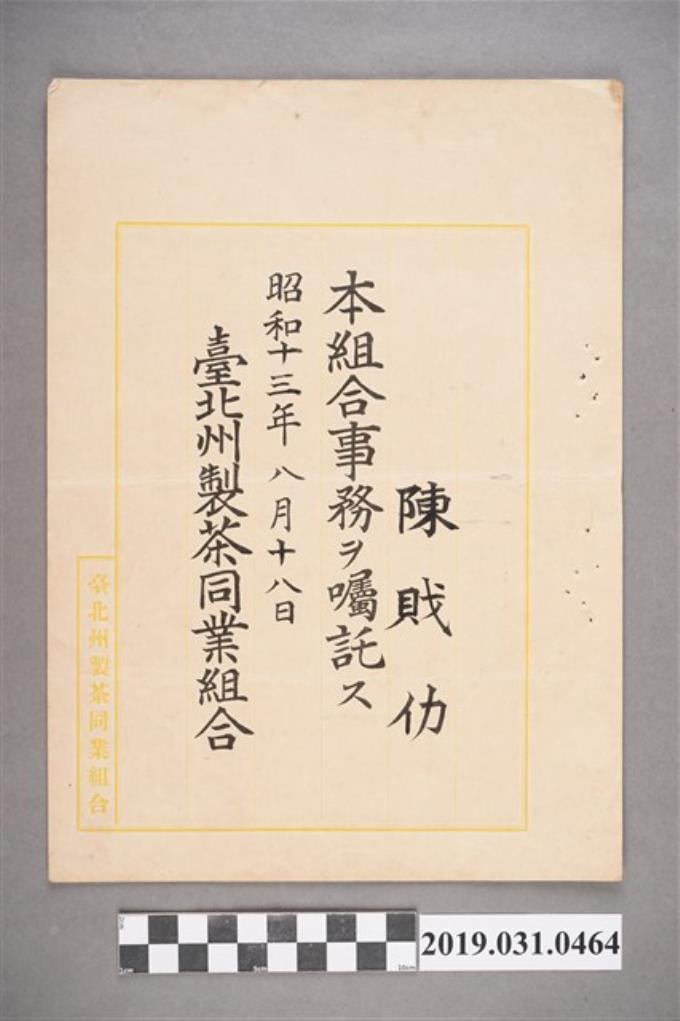 陳戝仂
本組合事務ヲ囑託ス
昭和十三年八月十八日
臺北州製茶同業組合
臺北州製茶同業組合
1cm 5cm 10cm
2019.031.0464